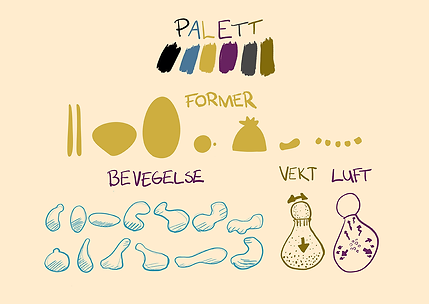 PALETT
FORMER
BEVEGELSE
VEKT
LUFT